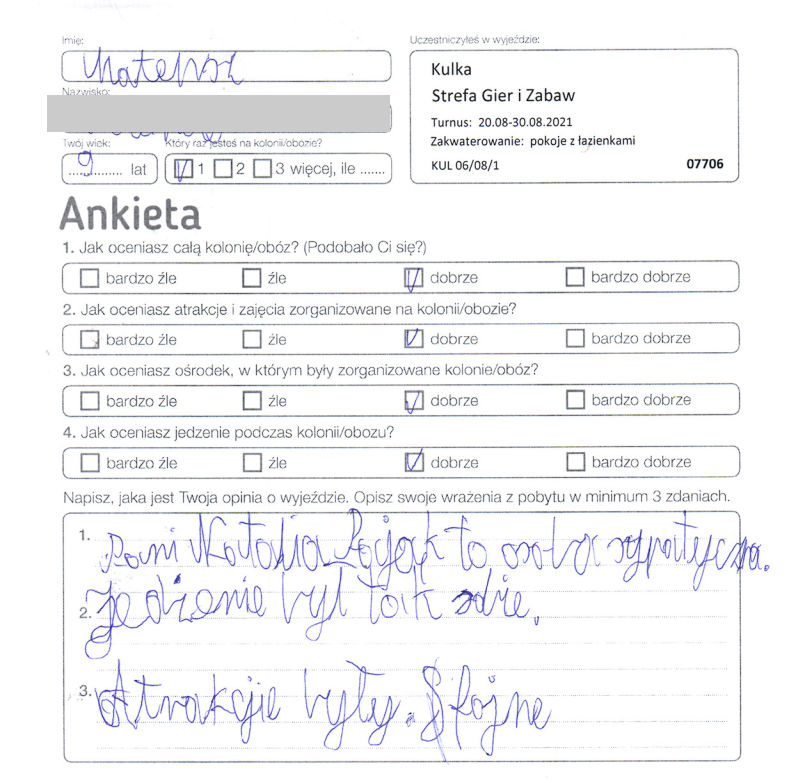 Imię:
Mateusz
Nazwisko:
Twój wiek:
Który raz jesteś na kolonii/obozie?
9 lat
1 2 3 więcej, ile .......
Uczestniczyłeś w wyjeździe:
Kulka
Strefa Gier i Zabaw
Turnus: 20.08-30.08.2021
Zakwaterowanie: pokoje z łazienkami
KUL 06/08/1 07706
Ankieta
1. Jak oceniasz całą kolonię/obóz? (Podobało Ci się?)
bardzo źle źle dobrze bardzo dobrze
2. Jak oceniasz atrakcje i zajęcia zorganizowane na kolonii/obozie?
bardzo źle źle dobrze bardzo dobrze
3. Jak oceniasz ośrodek, w którym były zorganizowane kolonie/obóz?
bardzo źle źle dobrze bardzo dobrze
4. Jak oceniasz jedzenie podczas kolonii/obozu?
bardzo źle źle dobrze bardzo dobrze
Napisz, jaka jest Twoja opinia o wyjeździe. Opisz swoje wrażenia z pobytu w minimum 3 zdaniach.
1. Pani Natalia to osoba sypatyczna.
2. Jedzenie był
3. Atrakcjie były. Sfojne